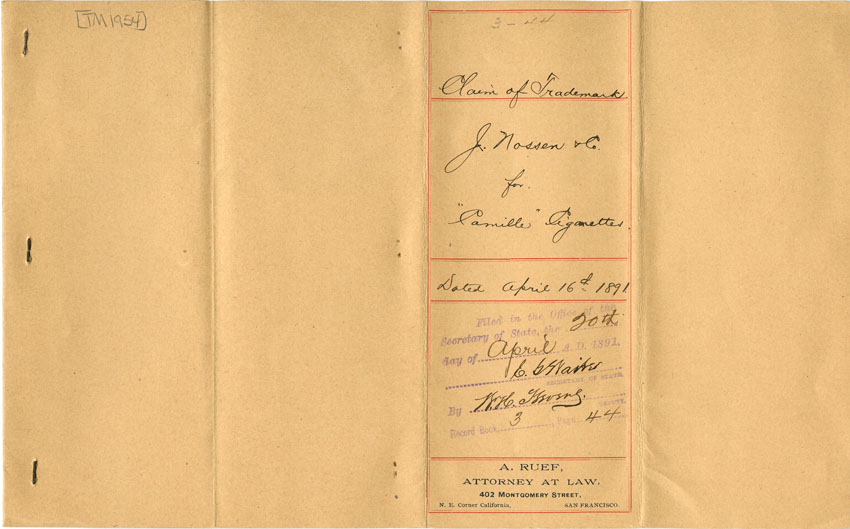 [TM1954]
3-44
Claim of Trademark.
J. Nossen & Co.
for
"Camille" Cigarettes.
Dated April 16th 1891
Filed in the Office of the
Secretary of State, the 20th
day of April A.D. 1891.
SECRETARY OF STATE.
By W.H.
DEPUTY.
Record Book 3 Page 44
A. RUEF,
ATTORNEY AT LAW,
402 MONTGOMERY STREET,
N. E. Corner California, SAN FRANCISCO.